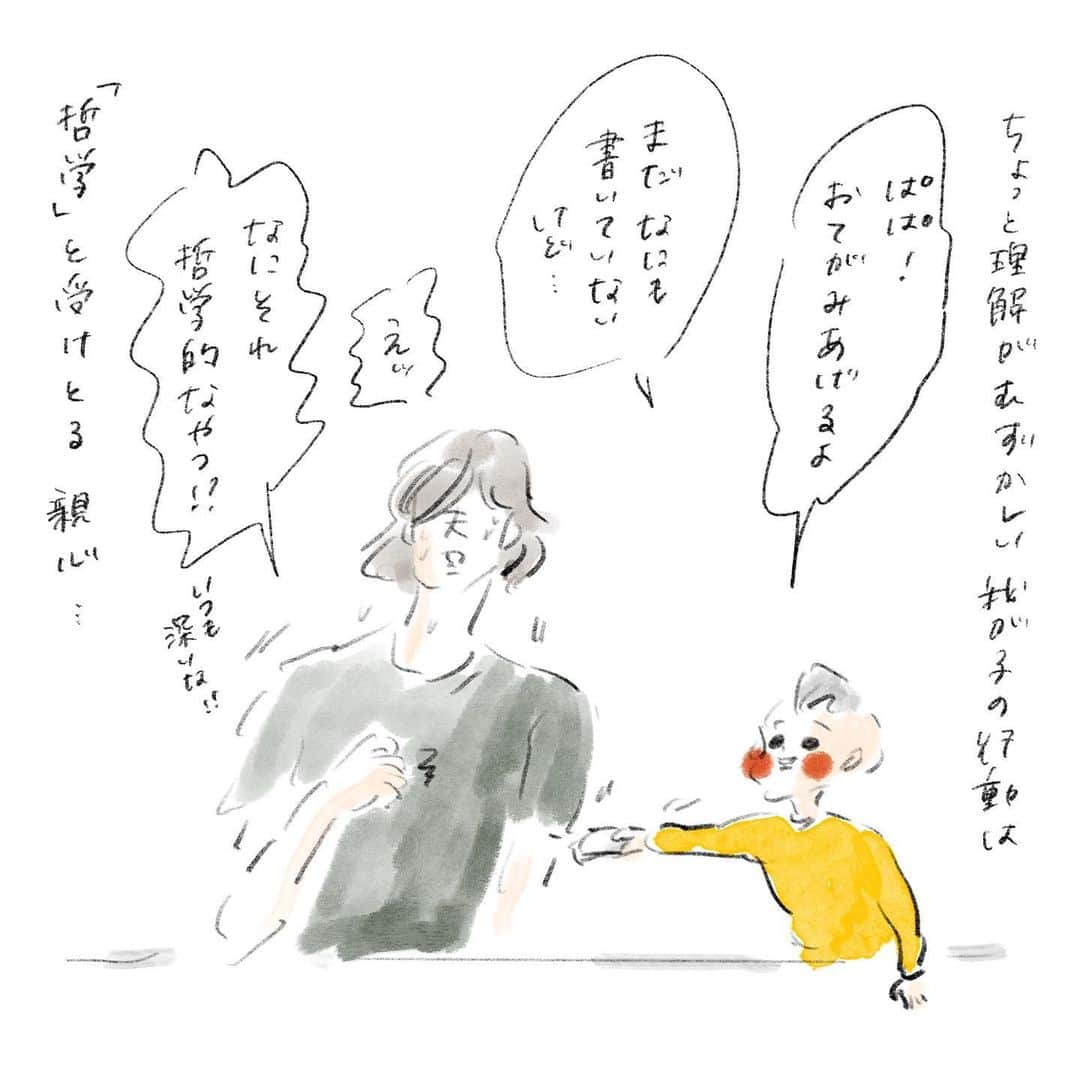 ちょっと理解がむずかしい 我が子の行動は
ぱぱ！
おてがみあげるよ
まだなにも
書いていない
けど…
えッ
なにそれ
哲学的なやつ!?
いつも
深いな!!
「哲学」と受けとる 親心…